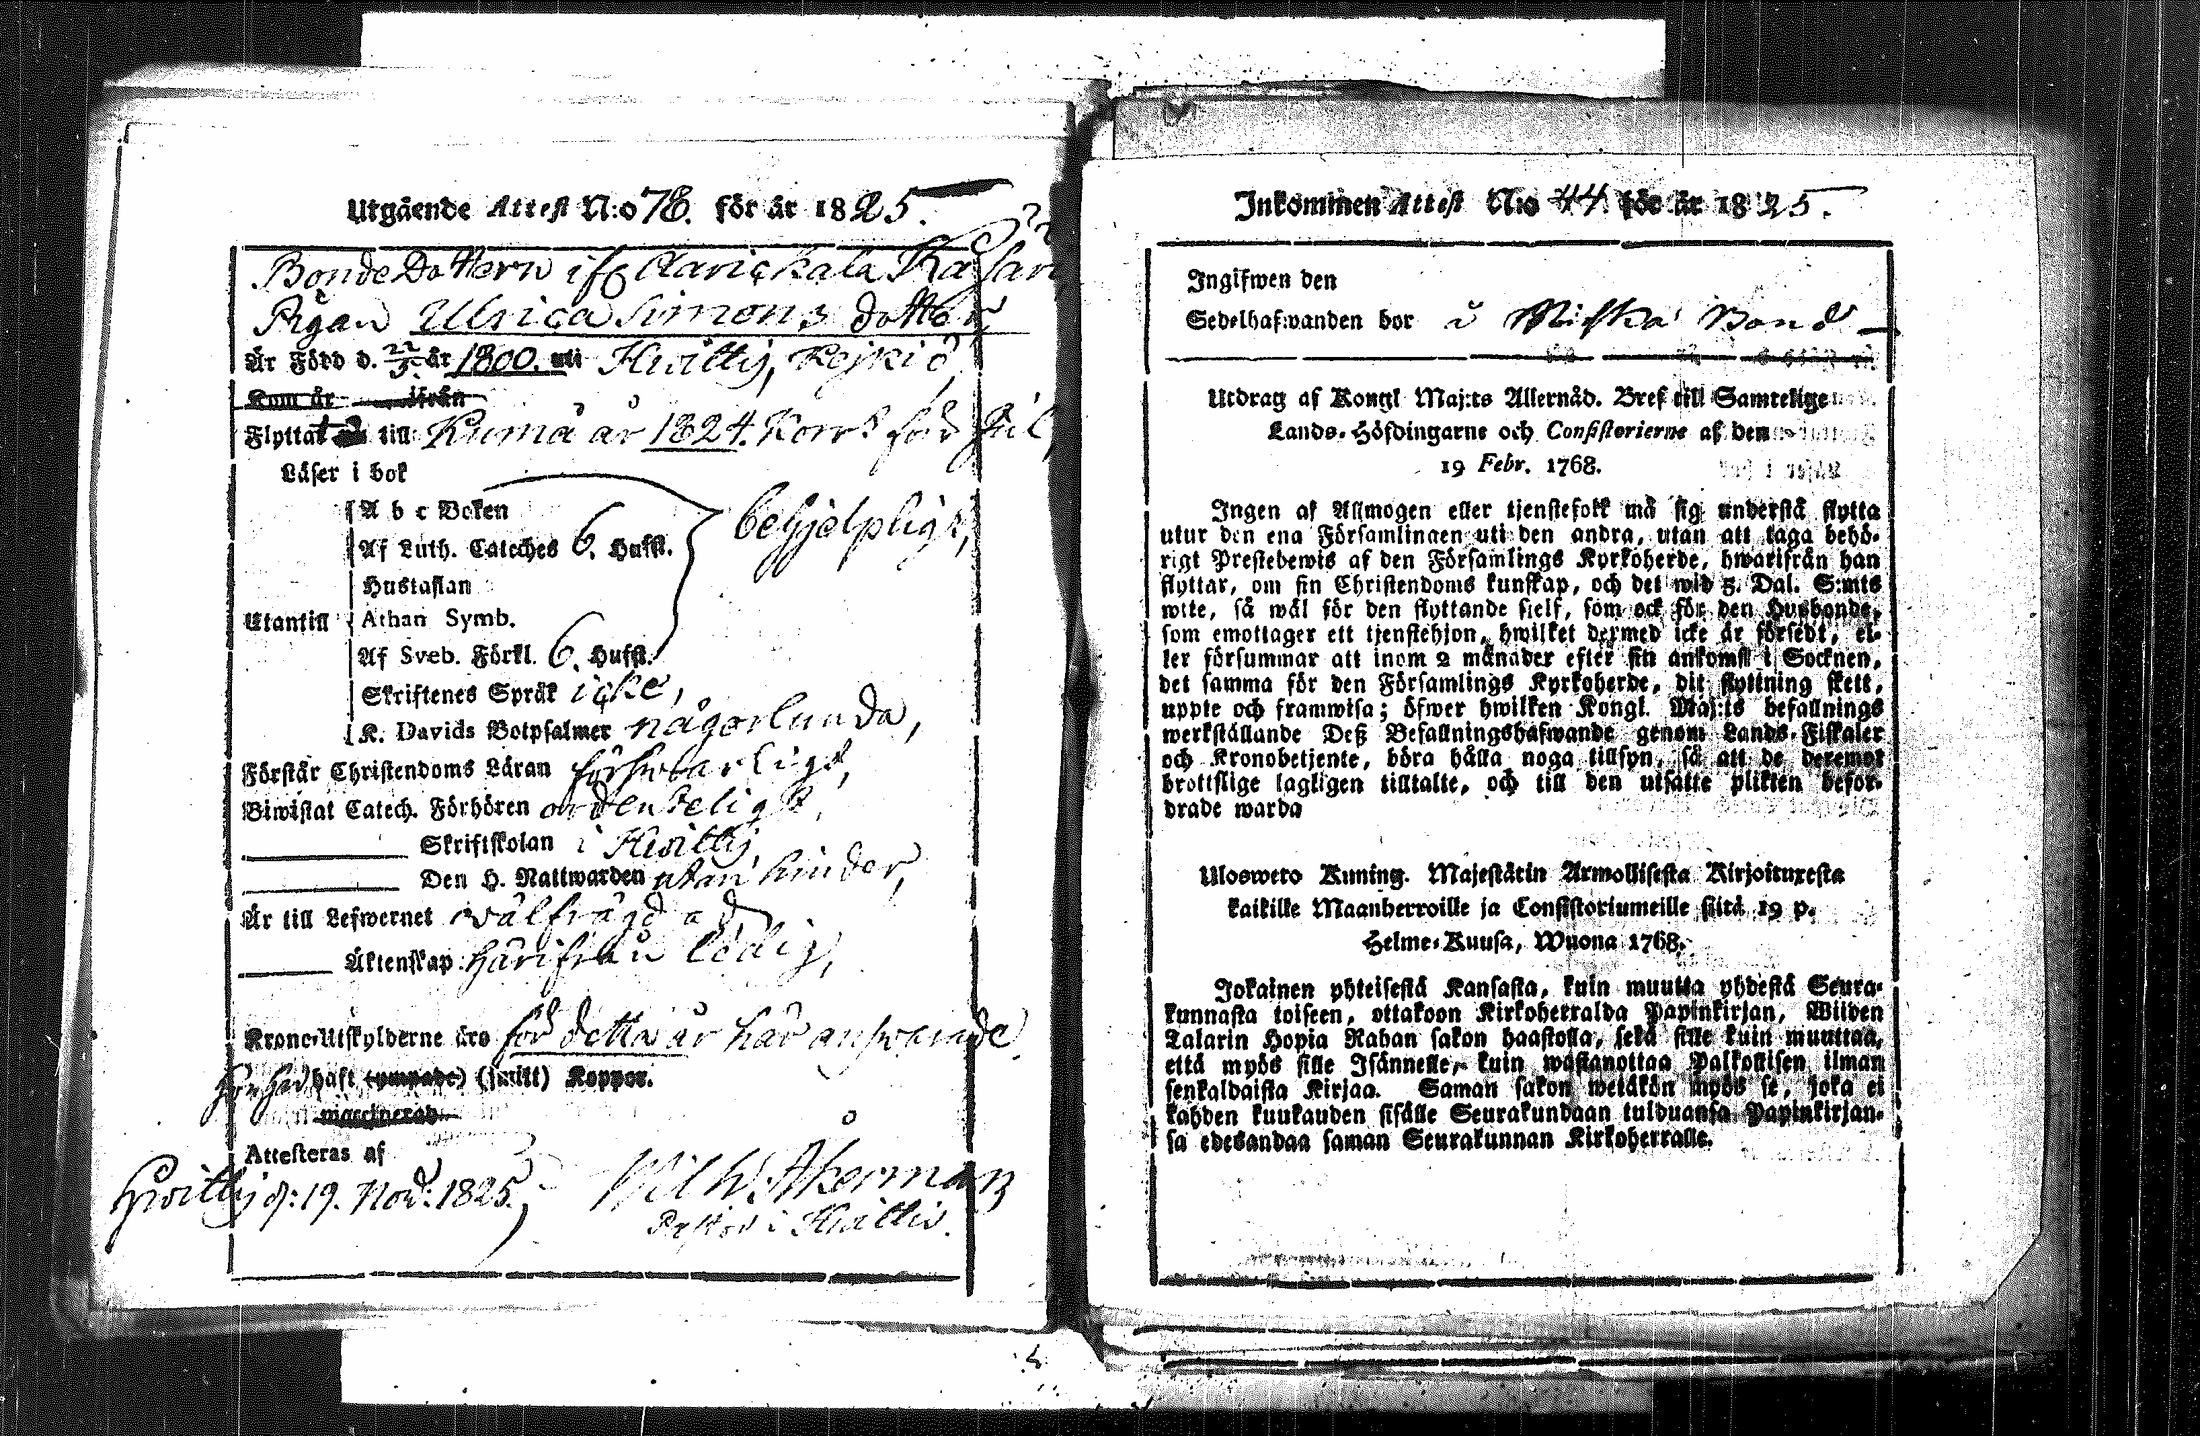 Utgående Attest N:o 78. för år 1825.
BondeDottern ifr
Pigan Ulrica Simons dotter
Är Född d. 22/3. år 1800. uti Hwittis,
Kom år ifrån
Flyttat till Kumå år 1824. för
Läser i bok
A b c Boken
Af Luth. Cateches 6. Hufst. behjelpligt,
Hustaflan
Utantill
Athan Symb.
Af Sveb. Förkl. 6. Hufst.
Skriftenes Språk icke,
K. Davids Botpsalmer någorlunda,
Förstår Christendoms Läran försvarligt,
Biwistat Catech. Förhören ordenteligt,
Skriftskolan i Hwittis
Den H. Nattwarden utan hinder,
Är till Lefwernet välfrägdad
Äktenskap härifrån ledig,
Krono-Utskylderne äro för detta år här answarade.
haft (ympade) (smitt) Koppor.
vaccinerad
Attesteras af
Hwittis d: 19. Nov: 1825. Wilh. Åkerman
Pastor i Hwittis.
Inkommen Attest N:o 44. för år 1825.
Ingifwen den
Sedelhafwanden bor
Utdrag af Kongl Maj:ts Allernåd. Bref till Samtelige
Lands-Höfdingarne och Consistorierne af den
19 Febr. 1768.
Ingen af Allmogen eller tjenstefolk må sig understå flytta
utur den ena Församlingen uti den andra, utan att taga behö-
rigt Prestebewis af den Församlings Kyrkoherde, hwarifrån han
flyttar, om sin Christendoms kunskap, och det wid 5. Dal. S:mts
wite, så wäl för den flyttande sielf, som ock för den Husbonde,
som emottager ett tjenstehjon, hwilket dermed icke är försedt, el-
ler försummar att inom 2 månader efter sin ankomst i Socknen,
det samma för den Församlings Kyrkoherde, dit flyttning skett,
uppte och framwisa; öfwer hwilken Kongl. Maj:ts befallnings
werkställande Deß Befallningshafwande genom Lands-Fiskaler
och Kronobetjente, böra hålla noga tillsyn, så att de deremot
brottslige lagligen tilltalte, och till den utsatte plikten befor-
drade warda
Ulosweto Kuning. Majestätin Armollisesta Kirjoituxesta
kaikille Maanherroille ja Consistoriumeille siitä 19 p.
Helme-Kuusa, Wuona 1768.
Jokainen yhteisestä Kansasta, kuin muutta yhdestä Seura-
kunnasta toiseen, ottakoon Kirkoherralda Papinkirjan, Wiiden
Talarin Hopia Rahan sakon haastolla, sekä sille kuin muuttaa,
että myös sille Isännelle, kuin wastanottaa Palkollisen ilman
senkaldaista Kirjaa. Saman sakon wetäkön myös se, joka ei
kahden kuukauden sisälle Seurakundaan tulduansa Papinkirjan-
sa edesandaa saman Seurakunnan Kirkoherralle.